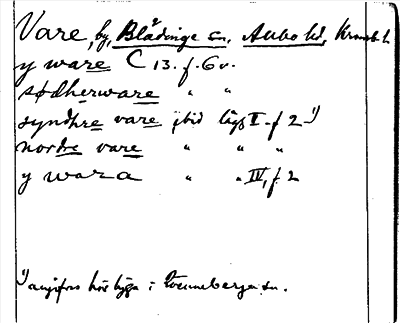 Vare, by, Blädinge sn, Allbo hd, Kronob. l.
y ware C 13. f. 6 v.
sødherware " "
syndhre vare ibid lägg I f 2 1)
nordre vare " " "
y wara " " IV, f. 2
1) angifves här ligga i Wennberga sn.